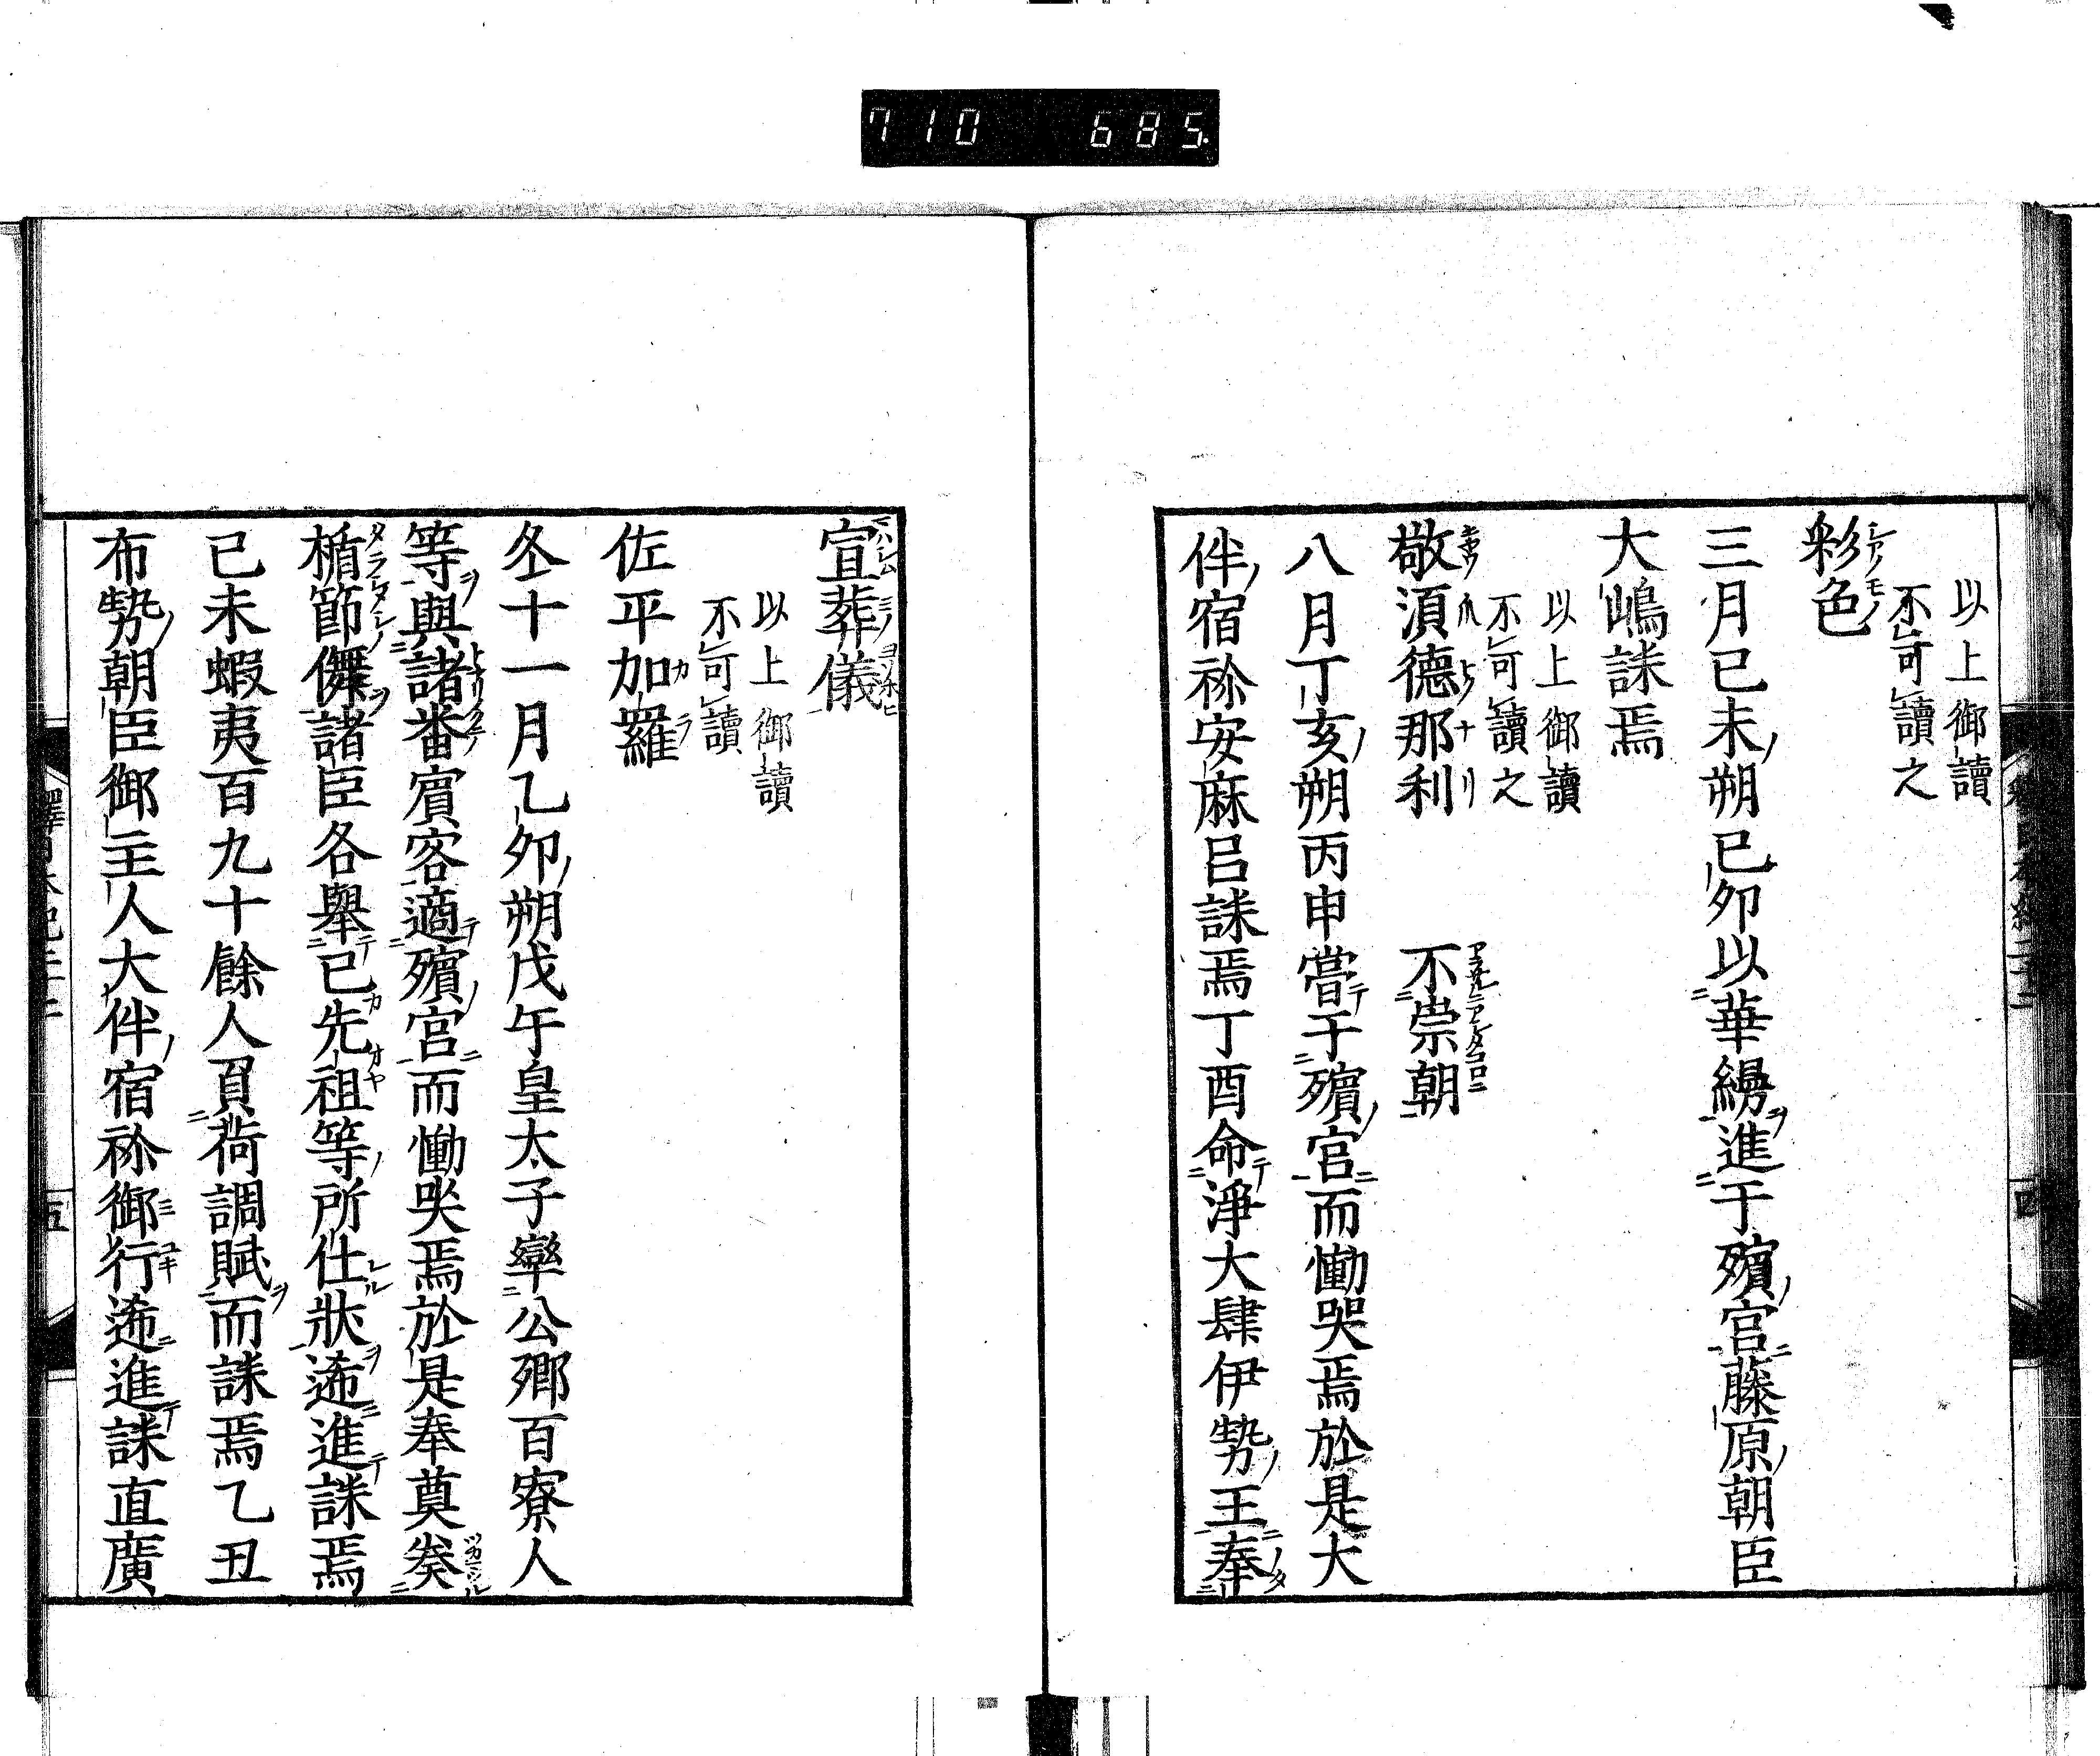 710 685
以上御讀
不可讀之
彩色
三月己未朔己卯以華縵進于殯宮藤原朝臣
大嶋誄焉
以上御讀
不可讀之
敬須德那利 不崇朝
八月丁亥朔丙申嘗于殯宮而慟哭焉於是大
伴宿祢安麻呂誄焉丁酉命淨大肆伊勢王奉
宣葬儀
以上御讀
不可讀
佐平加羅
冬十一月乙卯朔戊午皇太子率公卿百寮人
等與諸番賓客適殯宮而慟哭焉於是奉奠奏
楯節儛諸臣各舉己先祖等所仕狀遞進誄焉
己未蝦夷百九十餘人負荷調賦而誄焉乙丑
布勢朝臣御主人大伴宿祢御行遞進誄直廣